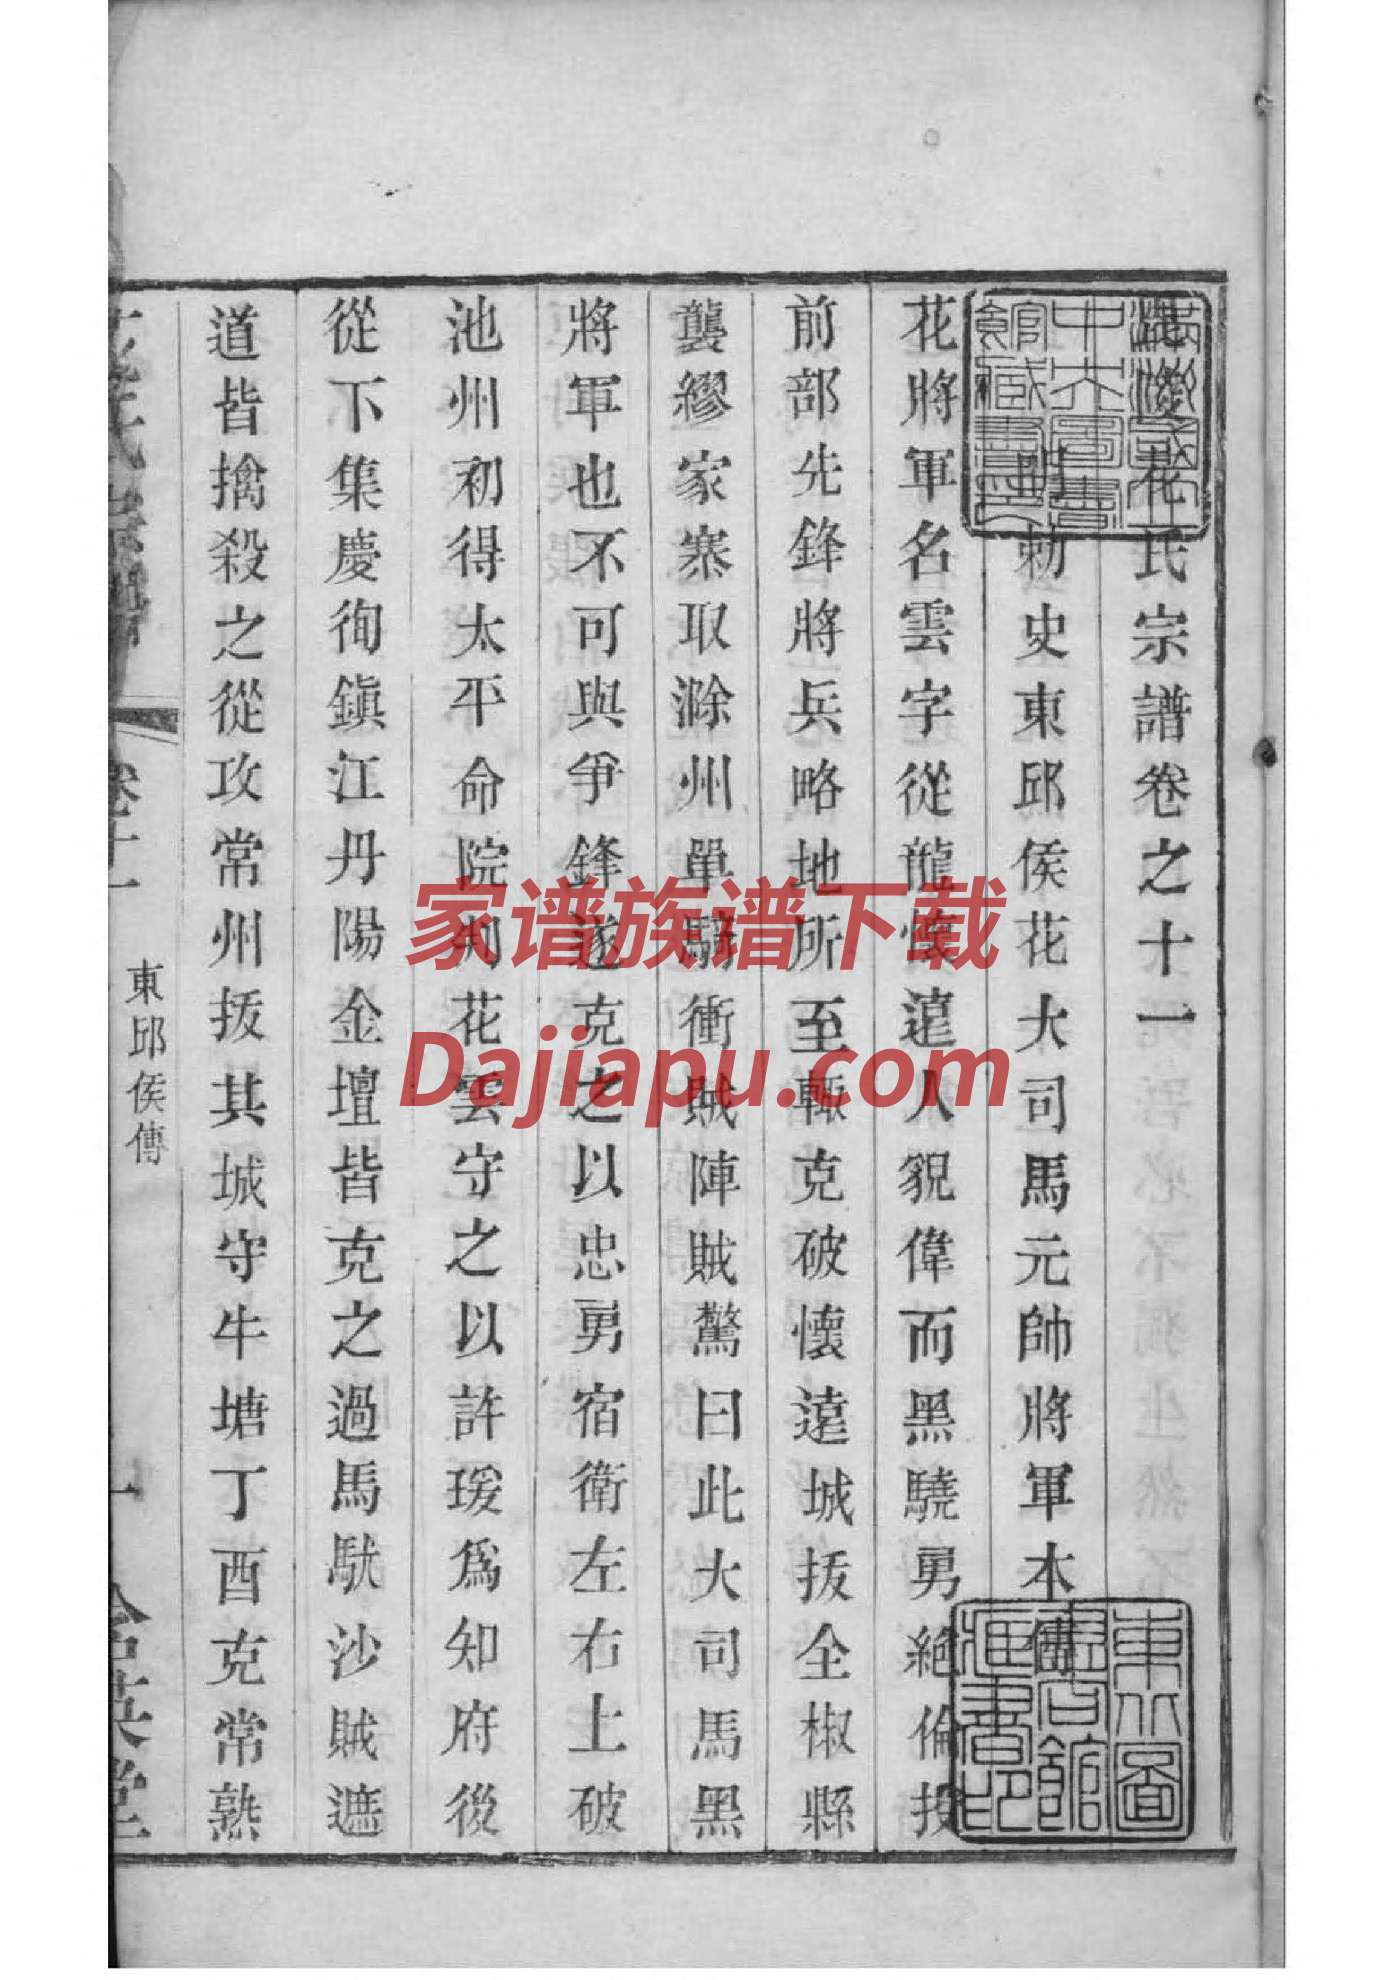 毘陵花氏宗譜卷之十一
明勅史東邱侯花大司馬元帥將軍本傳
花將軍名雲字從龍懷遠人貌偉而黑驍勇絕倫投
前部先鋒將兵略地所至輒克破懷遠城拔全椒縣
龔繆家寨取滁州單騎衝賊陣賊驚曰此大司馬黑
將軍也不可與爭鋒遂克之以忠勇宿衛左右上破
池州初得太平命院判花雲守之以許瑗爲知府後
從下集慶徇鎮江丹陽金壇皆克之過馬馱沙賊遮
道皆擒殺之從攻常州拔其城守牛塘丁酉克常熟
花氏宗譜
卷十一
東邱侯傳
一
含英堂
家谱族谱下载
Dajiapu.com